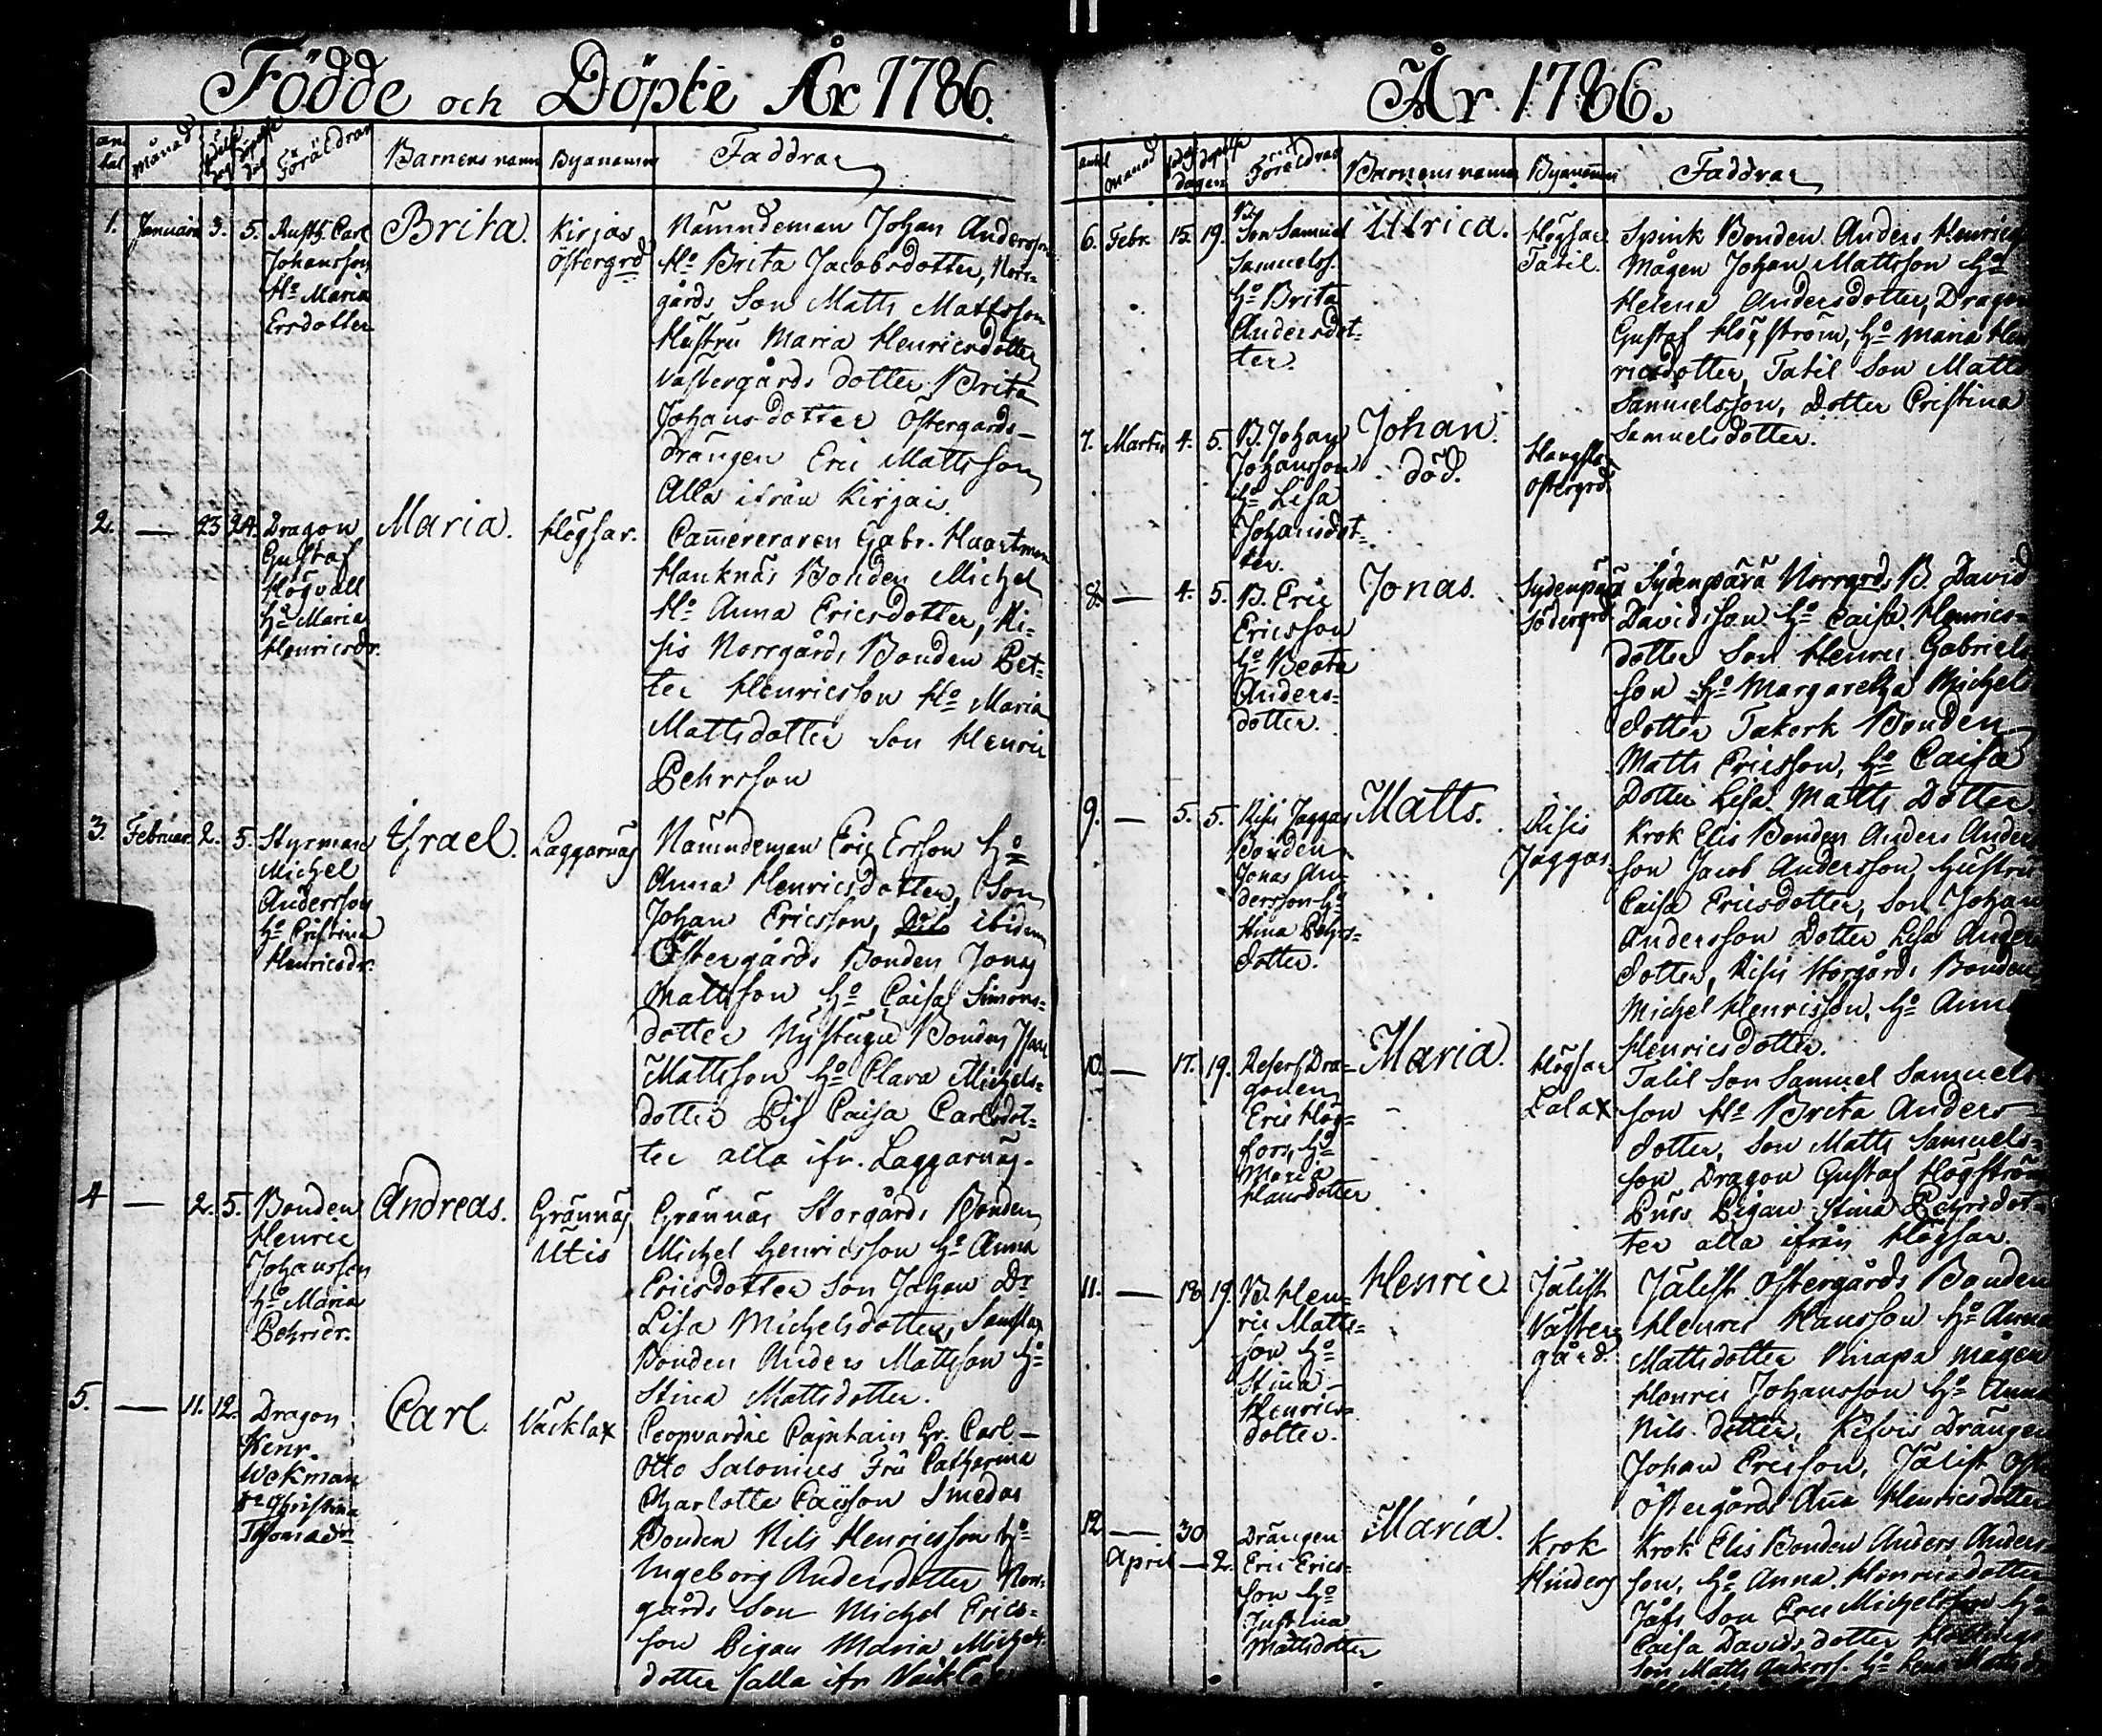 Födde och Döpte År 1786.
an tal
månad
födelse dag
döpelse dag
Föräldrar
Barnens namn
Byanamn
Faddrar
1. Januarii 3. 5.
Rusth. Carl
Johansson
H:o Maria
Ersdotter
Brita.
Kirjas
Östergrd
Nämndeman Johan Andersson
H:o Brita Jacobsdotter, Norr-
gårds Son Matts Mattsson
Hustru Maria Henricsdotter
Västergårds dotter Brita
Johansdotter Östergårds
drängen Eric Mattsson
Alla ifrån Kirjais.
2. — 23 24.
Dragon
Gustaf
Högvall
H:o Maria
Henricsdr.
Maria.
Högsar.
Camereraren Gabr. Haartman
Hanknäs Bonden Michel
H:o Anna Ericsdotter, Ri-
sis Norrgårds Bonden Pet-
ter Henricsson H:o Maria
Mattsdotter Son Henric
Pehrsson
3. Februar. 2. 5.
Styrman
Michel
Andersson
H:o Cristina
Henricsdr.
Israel.
Laggarnäs
Nämndeman Eric Ersson H:o
Anna Henricsdotter, Son
Johan Ericsson, ibidem
Östergårds Bonden Jonas
Mattsson H:o Caisa Simons-
dotter Nystugu Bonden Isaac
Mattsson H:o Clara Michels-
dotter Pig Caisa Carlsdot-
ter alla ifr. Laggarnäs.
4 — 2. 5.
Bonden
Henric
Johansson
H:o Maria
Pehrsdr.
Andreas.
Grännäs
Utis
Grännäs Storgårds Bonden
Michel Henricsson H:o Anna
Ericsdotter Son Johan Dr
Lisa Michelsdotter,
Bonden Anders Mattsson H:o
Stina Mattsdotter.
5. — 11. 12.
Dragon
Henr.
Wekman
H:o Christina
Thomadr
Carl.
Väcklax
Coopvardie Capitain Hr. Carl
Otto Salonius Fru Catharina
Charlotta Smedas
Bonden Nils Henricsson H:o
Ingeborg Andersdotter Norr-
gårds Son Michel Erics-
son Pigan Maria Michels
dotter (alla ifr Väcklax
År 1786.
antal
månad
födelse
döpelse
dagen
Föräldrar
Barnens namn
Byanamn
Faddrar
6. Febr. 15. 19.
Son Samuel
Samuelss.
H:o Brita
Andersdot-
ter.
Ulrica.
Högsar
Tatil.
Spink Bonden Anders Henrics
Mågen Johan Mattsson H:o
Helena Andersdotter, Dragon
Gustaf Högström, H:o Maria Hen
ricsdotter, Tatil Son Matts
Samuelsson, Dotter Cristina
Samuelsdotter.
7. Martii 4. 5.
B. Johan
Johansson
H:o Lisa
Johansdot-
ter.
Johan.
död.
Östergrd.
8. — 4. 5.
B. Eric
Ericsson
H:o Beata
Anders-
dotter.
Jonas.
Sydenperä
Södergrd
Sydenpärä Norrgrds B. David
Davidsson H:o Caisa Henrics-
dotter Son Henric Gabriels
son H:o Margaretha Michels
dotter Takork Bonden
Matts Ericsson, H:o Caisa
Dotter Lisa Matts Dotter
9. — 5. 5.
Risis Jaggas
Bonden
Jonas An-
dersson H:o
Stina Pehrs-
dotter.
Matts.
Risis
Jaggas.
Krok Elis Bonden Anders Anders
son Jacob Andersson, Hustru
Caisa Ericsdotter, Son Johan
Andersson Dotter Lisa Anders
dotter, Risis Storgårds Bonden
Michel Henricsson, H:o Anna
Henricsdotter.
10. — 17. 19.
Reserf Dra-
gonen
Eric Hög-
fors, H:o
Maria
Hansdotter
Maria.
Högsar
Lalax
Tatil Son Samuel Samuels
son H:o Brita Anders-
dotter, Son Matts Samuels-
son Dragon Gustaf Högström
Purs Pigan Stina Pehrsdot-
ter alla ifrån Högsar.
11. — 18 19.
B. Hen-
ric Matts-
son H:o
Stina
Henrics-
dotter.
Henric
Jälist
Väster-
gård.
Jälist Östergårds Bonden
Henric Hansson H:o Anna
Mattsdotter mågen
Henric Johansson H:o Anna
Nils dotter, Drängen
Johan Ericsson, Jälist
Östergårds Anna Henricsdotter
12 — 30
April — 2.
Drängen
Eric Erics-
son H:o
Justina
Mattsdotter
Maria.
Krok
Hinders
Krok Elis Bonden Anders Anders-
son, H:o Anna Henricsdotter
Son Eric Michelsson H:o
Caisa Davidsdotter
Son Matts Anderss. H:o Lena